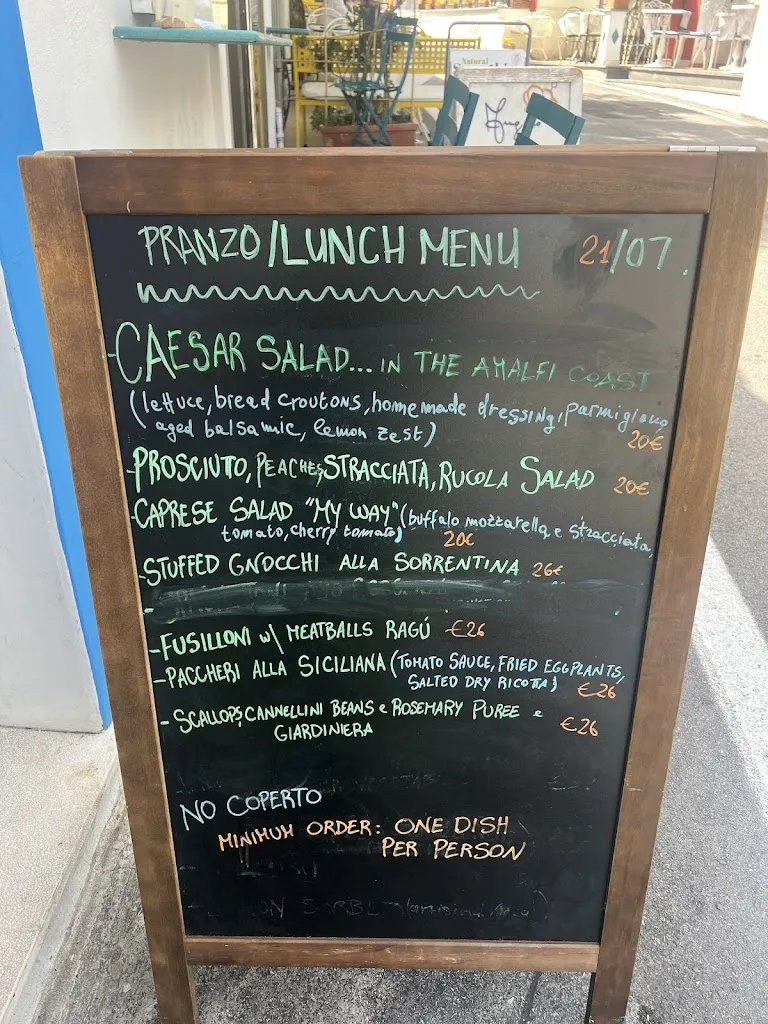 Natural
PRANZO/LUNCH MENU 21/07.
-CAESAR SALAD... IN THE AMALFI COAST
(lettuce, bread croutons, homemade dressing, parmigiano
aged balsamic, lemon zest) 20€
-PROSCIUTO, PEACHES, STRACCIATA, RUCOLA SALAD 20€
-CAPRESE SALAD "MY WAY" (buffalo mozzarella e stracciata,
tomato, cherry tomato) 20€
-STUFFED GNOCCHI ALLA SORRENTINA 26€
-FUSILLONI w\ MEATBALLS RAGÚ €26
-PACCHERI ALLA SICILIANA (TOMATO SAUCE, FRIED EGGPLANTS,
SALTED DRY RICOTTA) €26
- SCALLOPS, CANNELLINI BEANS e ROSEMARY PUREE e €26
GIARDINIERA
NO COPERTO
MINIMUM ORDER: ONE DISH
PER PERSON